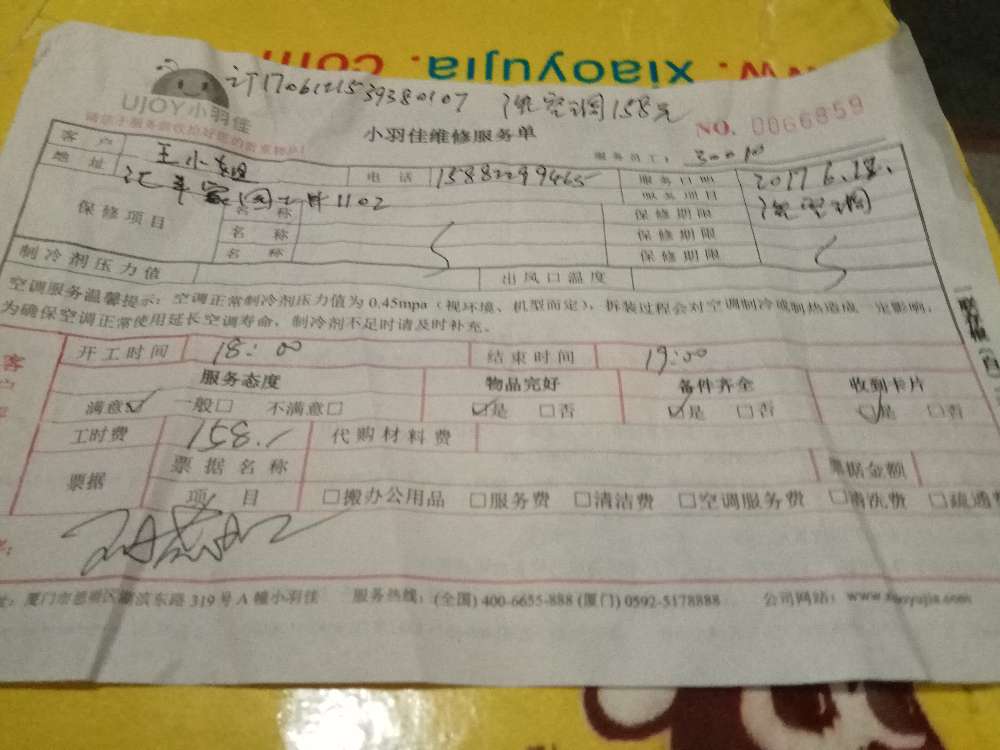 www.xiaoyujia.com
计1706121539380107 洗空调158元
UJOY小羽佳
NO. 0066859
小羽佳维修服务单
服务员工:
客户 王小姐 电话 服务日期 2017.6.18.
地址 1102 服务项目 洗空调
保修项目 名称 保修期限
名称 保修期限
名称 保修期限
制冷剂压力值 出风口温度
空调服务温馨提示:空调正常制冷剂压力值为0.45mpa(视环境、机型而定),拆装过程会对空调制冷或制热造成一定影响,
为确保空调正常使用延长空调寿命,制冷剂不足时请及时补充。
开工时间 18:00 结束时间 19:00
服务态度 物品完好 备件齐全 收到卡片
满意☑ 一般□ 不满意□ ☑是 □否 ☑是 □否 ☑是 □否
工时费 158.- 代购材料费
票据 票据名称 票据金额
项目 □搬办公用品 □服务费 □清洁费 □空调服务费 □清洗费 □疏通
厦门市思明区湖滨东路319号A幢小羽佳 服务热线:(全国)400-6655-888(厦门)0592-5178888 公司网站:www.xiaoyujia.com